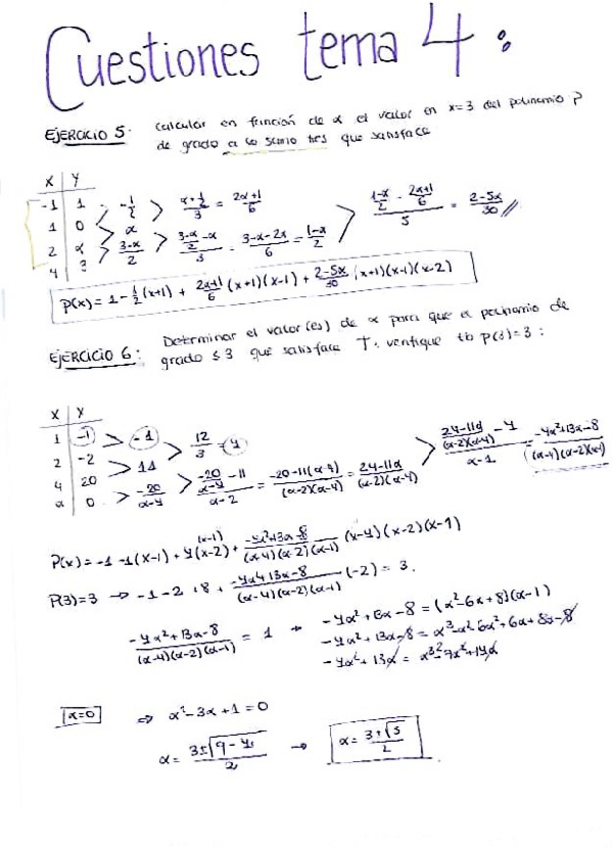 Cuestiones tema 4:
EJERCICIO 5: Calcular en función de α el valor en x=3 del polinomio P
de grado a lo sumo tres que satisface
X | Y
-1 | 1
1 | 0
2 | α
4 | 3
-1/2 > (α+1/2)/3 = (2α+1)/6
α
(3-α)/2 > ((3-α)/2 - α)/3 = (3-α-2α)/6 = (1-α)/2
((1-α)/2 - (2α+1)/6)/5 = (2-5α)/30 //
P(x) = 1 - 1/2 (x+1) + (2α+1)/6 (x+1)(x-1) + (2-5α)/30 (x+1)(x-1)(x-2)
EJERCICIO 6: Determinar el valor(es) de α para que el polinomio de
grado ≤ 3 que satisface T. verifique tb p(3)=3:
X | Y
1 | -1
2 | -2
4 | 20
α | 0
-1 > 12/3 = 4
11
-20/(α-4) > (-20/(α-4) - 11)/(α-2) = (-20-11(α-4))/((α-2)(α-4)) = (24-11α)/((α-2)(α-4))
((24-11α)/((α-2)(α-4)) - 4)/(α-1) = (-4α²+13α-8)/((α-4)(α-2)(α-1))
P(x) = -1 -1(x-1) + 4(x-2)(x-1) + (-4α²+13α-8)/((α-4)(α-2)(α-1)) (x-4)(x-2)(x-1)
P(3)=3 → -1-2+8+ (-4α4+13α-8)/((α-4)(α-2)(α-1)) (-2) = 3.
(-4α²+13α-8)/((α-4)(α-2)(α-1)) = 1 → -4α²+13α-8 = (α²-6α+8)(α-1)
-4α²+13α-8 = α³-α²-6α²+6α+8α-8
-4α²+13α = α³-7α²+14α
α=0 ⇒ α²-3α+1=0
α = (3±√(9-4))/2 → α = (3±√5)/2